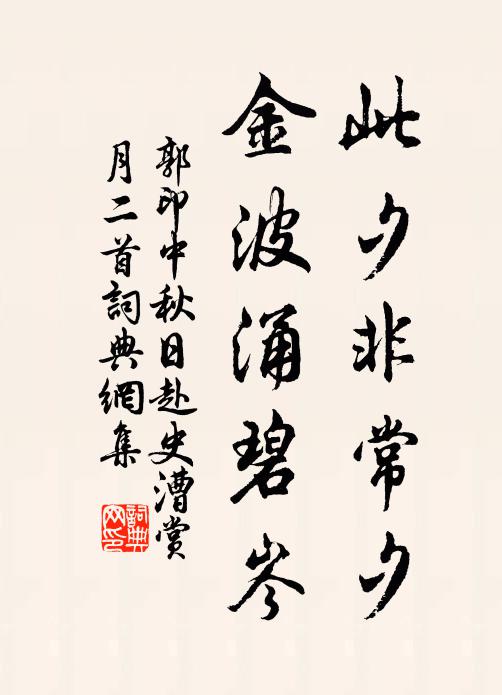 此夕非常夕
金波涌碧岑
郭印中秋日赴史漕赏
月二首詞典網集